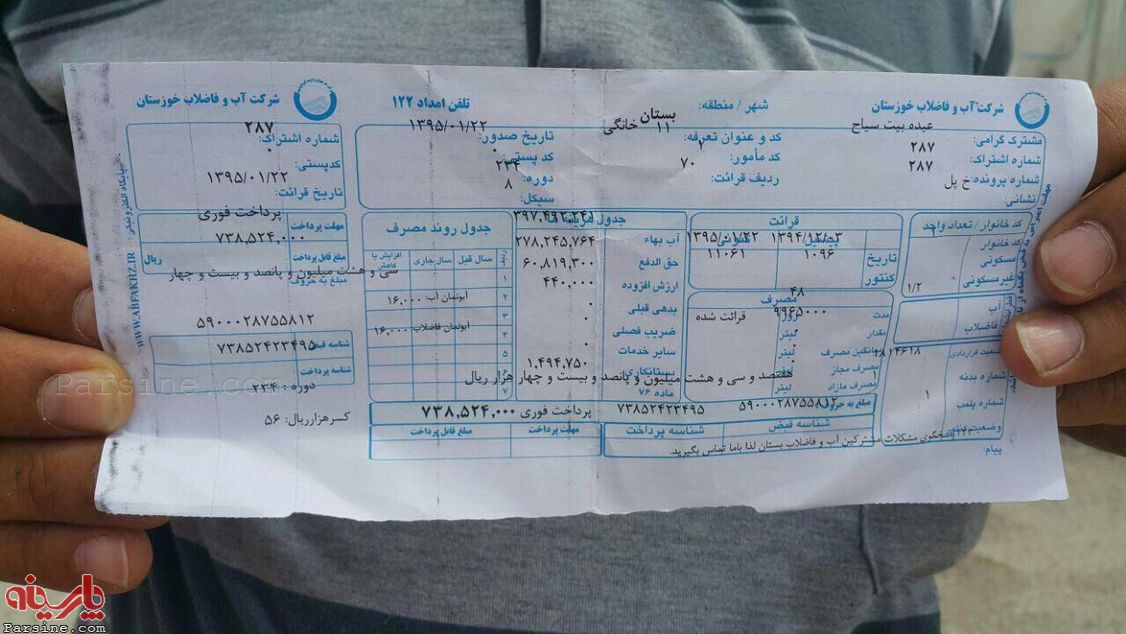 شرکت آب و فاضلاب خوزستان
شهر / منطقه:
بستان
تلفن امداد ۱۲۲
شرکت آب و فاضلاب خوزستان
مشترک گرامی:
عیده بیت سیاح
کد و عنوان تعرفه:
۱۱ خانگی
تاریخ صدور:
۱۳۹۵/۰۱/۲۲
شماره اشتراک:
۲۸۷
کد مامور:
کد پستی:
شماره پرونده:
۲۸۷
ردیف قرائت:
۷۰
دوره:
۲۳۴
نشانی:
خ پل
سیکل:
۸
شماره اشتراک:
۲۸۷
کدپستی:
۰
تاریخ قرائت:
۱۳۹۵/۰۱/۲۲
مهلت پرداخت
پرداخت فوری
مبلغ قابل پرداخت
۷۳۸,۵۲۴,۰۰۰
ریال
مبلغ به حروف:
سی و هشت میلیون و پانصد و بیست و چهار
۵۹۰۰۰۲۸۷۵۵۸۱۲
شناسه قبض
۷۳۸۵۲۴۲۳۴۹۵
شناسه پرداخت
دوره : ۲۳۴
کسرهزارریال: ۵۶
WWW.ABFAKHZ.IR
کد خانوار / تعداد واحد
کد خانوار
مسکونی
غیرمسکونی
۱/۲
آب
فاضلاب
شماره بدنه
شماره پلمب
۱
پیام:
قرائت
تاریخ
۱۳۹۵/۰۱/۲۲
کنتور
۱۱۰۶۱
۱۰۹۶
مصرف
مدت
۴۸
روز
مقدار
۹۹۶۵۰۰۰
لیتر
قرائت شده
میانگین مصرف
لیتر
مصرف مجاز
لیتر
مصرف مازاد
لیتر
آب بهاء
۳۹۷,۴۹۲,۲۴۱
حق الدفع
۲۷۸,۲۴۵,۷۶۴
ارزش افزوده
۶۰,۸۱۹,۳۰۰
بدهی قبلی
۴۴۰,۰۰۰
ضریب فصلی
۰
سایر خدمات
۰
بستانکاری
ماده ۷۶
۱,۴۹۴,۷۵۰
جدول روند مصرف
سال قبل
سال جاری
افزایش یا کاهش
آبونمان آب: ۱۶,۰۰۰
آبونمان فاضلاب: ۱۶,۰۰۰
مبلغ به حروف:
هفتصد و سی و هشت میلیون و پانصد و بیست و چهار هزار ریال
شناسه قبض
۵۹۰۰۰۲۸۷۵۵۸۱۲
شناسه پرداخت
۷۳۸۵۲۴۲۳۴۹۵
مهلت پرداخت
پرداخت فوری
مبلغ قابل پرداخت
۷۳۸,۵۲۴,۰۰۰
پاسخگوی مشکلات مشترکین آب و فاضلاب بستان لذا باما تماس بگیرید.
Parsine.com
پارسینه
Parsine.com